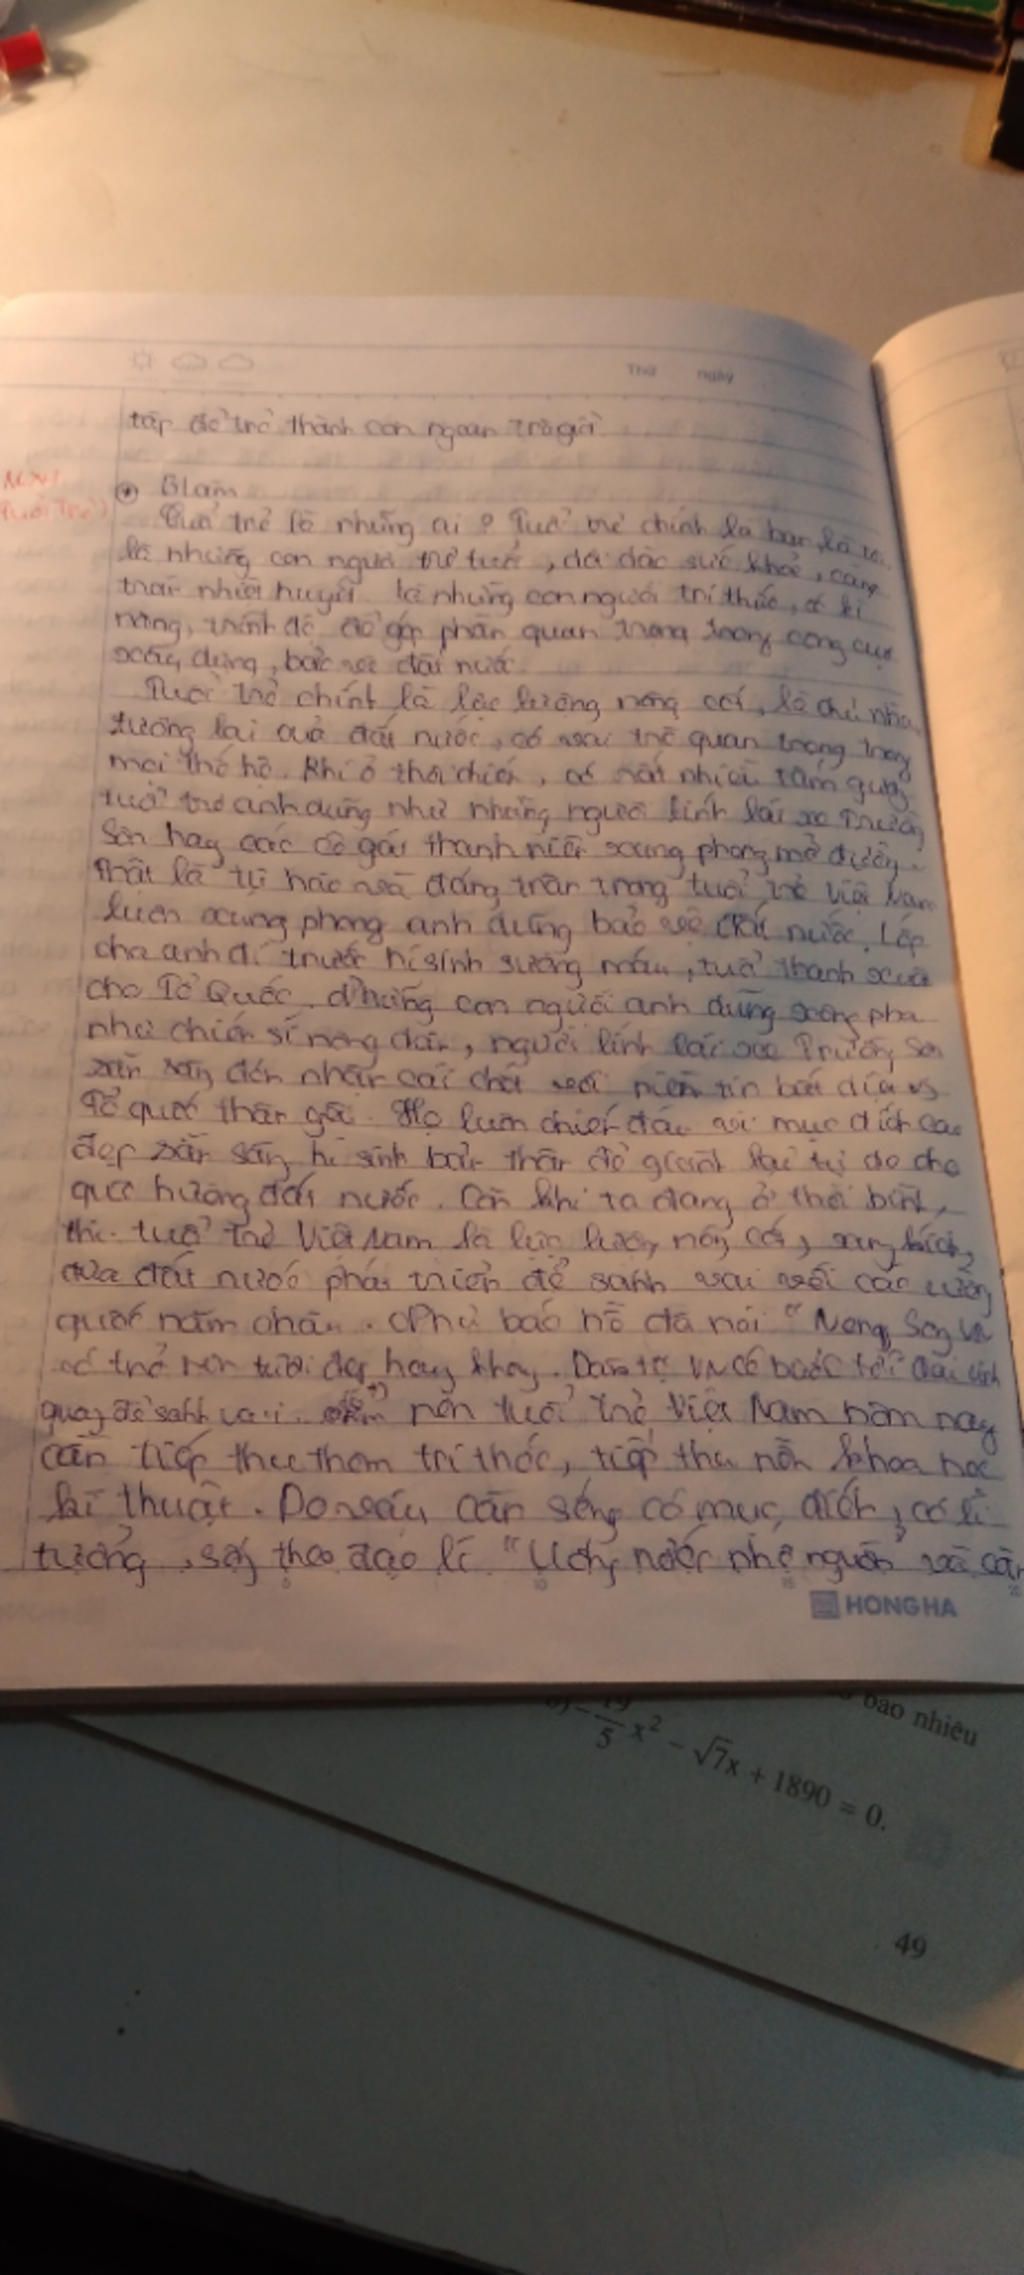 Thứ ngày
tập để trở thành con ngoan trò giỏi
NLXH
Tuổi trẻ
* Blàm
Tuổi trẻ là những ai? Tuổi trẻ chính là bạn, là tôi,
là những con người trẻ tuổi, dồi dào sức khoẻ, căng
tràn nhiệt huyết là những con người trí thức, có kĩ
năng, trình độ để góp phần quan trọng trong công cuộc
xây dựng, bảo vệ đất nước.
Tuổi trẻ chính là lực lượng nòng cốt, là chủ nhân
tương lai của đất nước, có vai trò quan trọng trong
mọi thế hệ. Khi ở thời chiến, có rất nhiều tấm gương
tuổi trẻ anh dũng như những người lính lái xe Trường
Sơn hay các cô gái thanh niên xung phong mở đường.
Thật là tự hào và đáng trân trọng tuổi trẻ Việt Nam
luôn xung phong anh dũng bảo vệ đất nước. Lớp
cha anh đi trước hi sinh xương máu, tuổi thanh xuân
cho Tổ Quốc. Những con người anh dũng xông pha
như chiến sĩ nông dân, người lính lái xe Trường Sơn
sẵn sàng đón nhận cái chết với niềm tin bất diệt vs
Tổ quốc thân yêu. Họ luôn chiến đấu với mục đích cao
đẹp sẵn sàng hi sinh bản thân để giành lại tự do cho
quê hương đất nước. Còn khi ta đang ở thời bình,
thì tuổi trẻ Việt Nam là lực lượng nòng cốt, xung kích
đưa đất nước phát triển để sánh vai với các cường
quốc năm châu. Như bác hồ đã nói "Non Sông VN
có trở nên tươi đẹp hay không. Dân tộc VN có bước tới đài vinh
quang để sánh vai nên tuổi trẻ Việt Nam hôm nay
cần tiếp thu thêm tri thức, tiếp thu nền khoa học
kĩ thuật. Do vậy cần sống có mục đích, có lí
tưởng, sống theo đạo lí "Uống nước nhớ nguồn" và cần
HONG HA
bao nhiêu
19/5 x² − √7x + 1890 = 0.
49